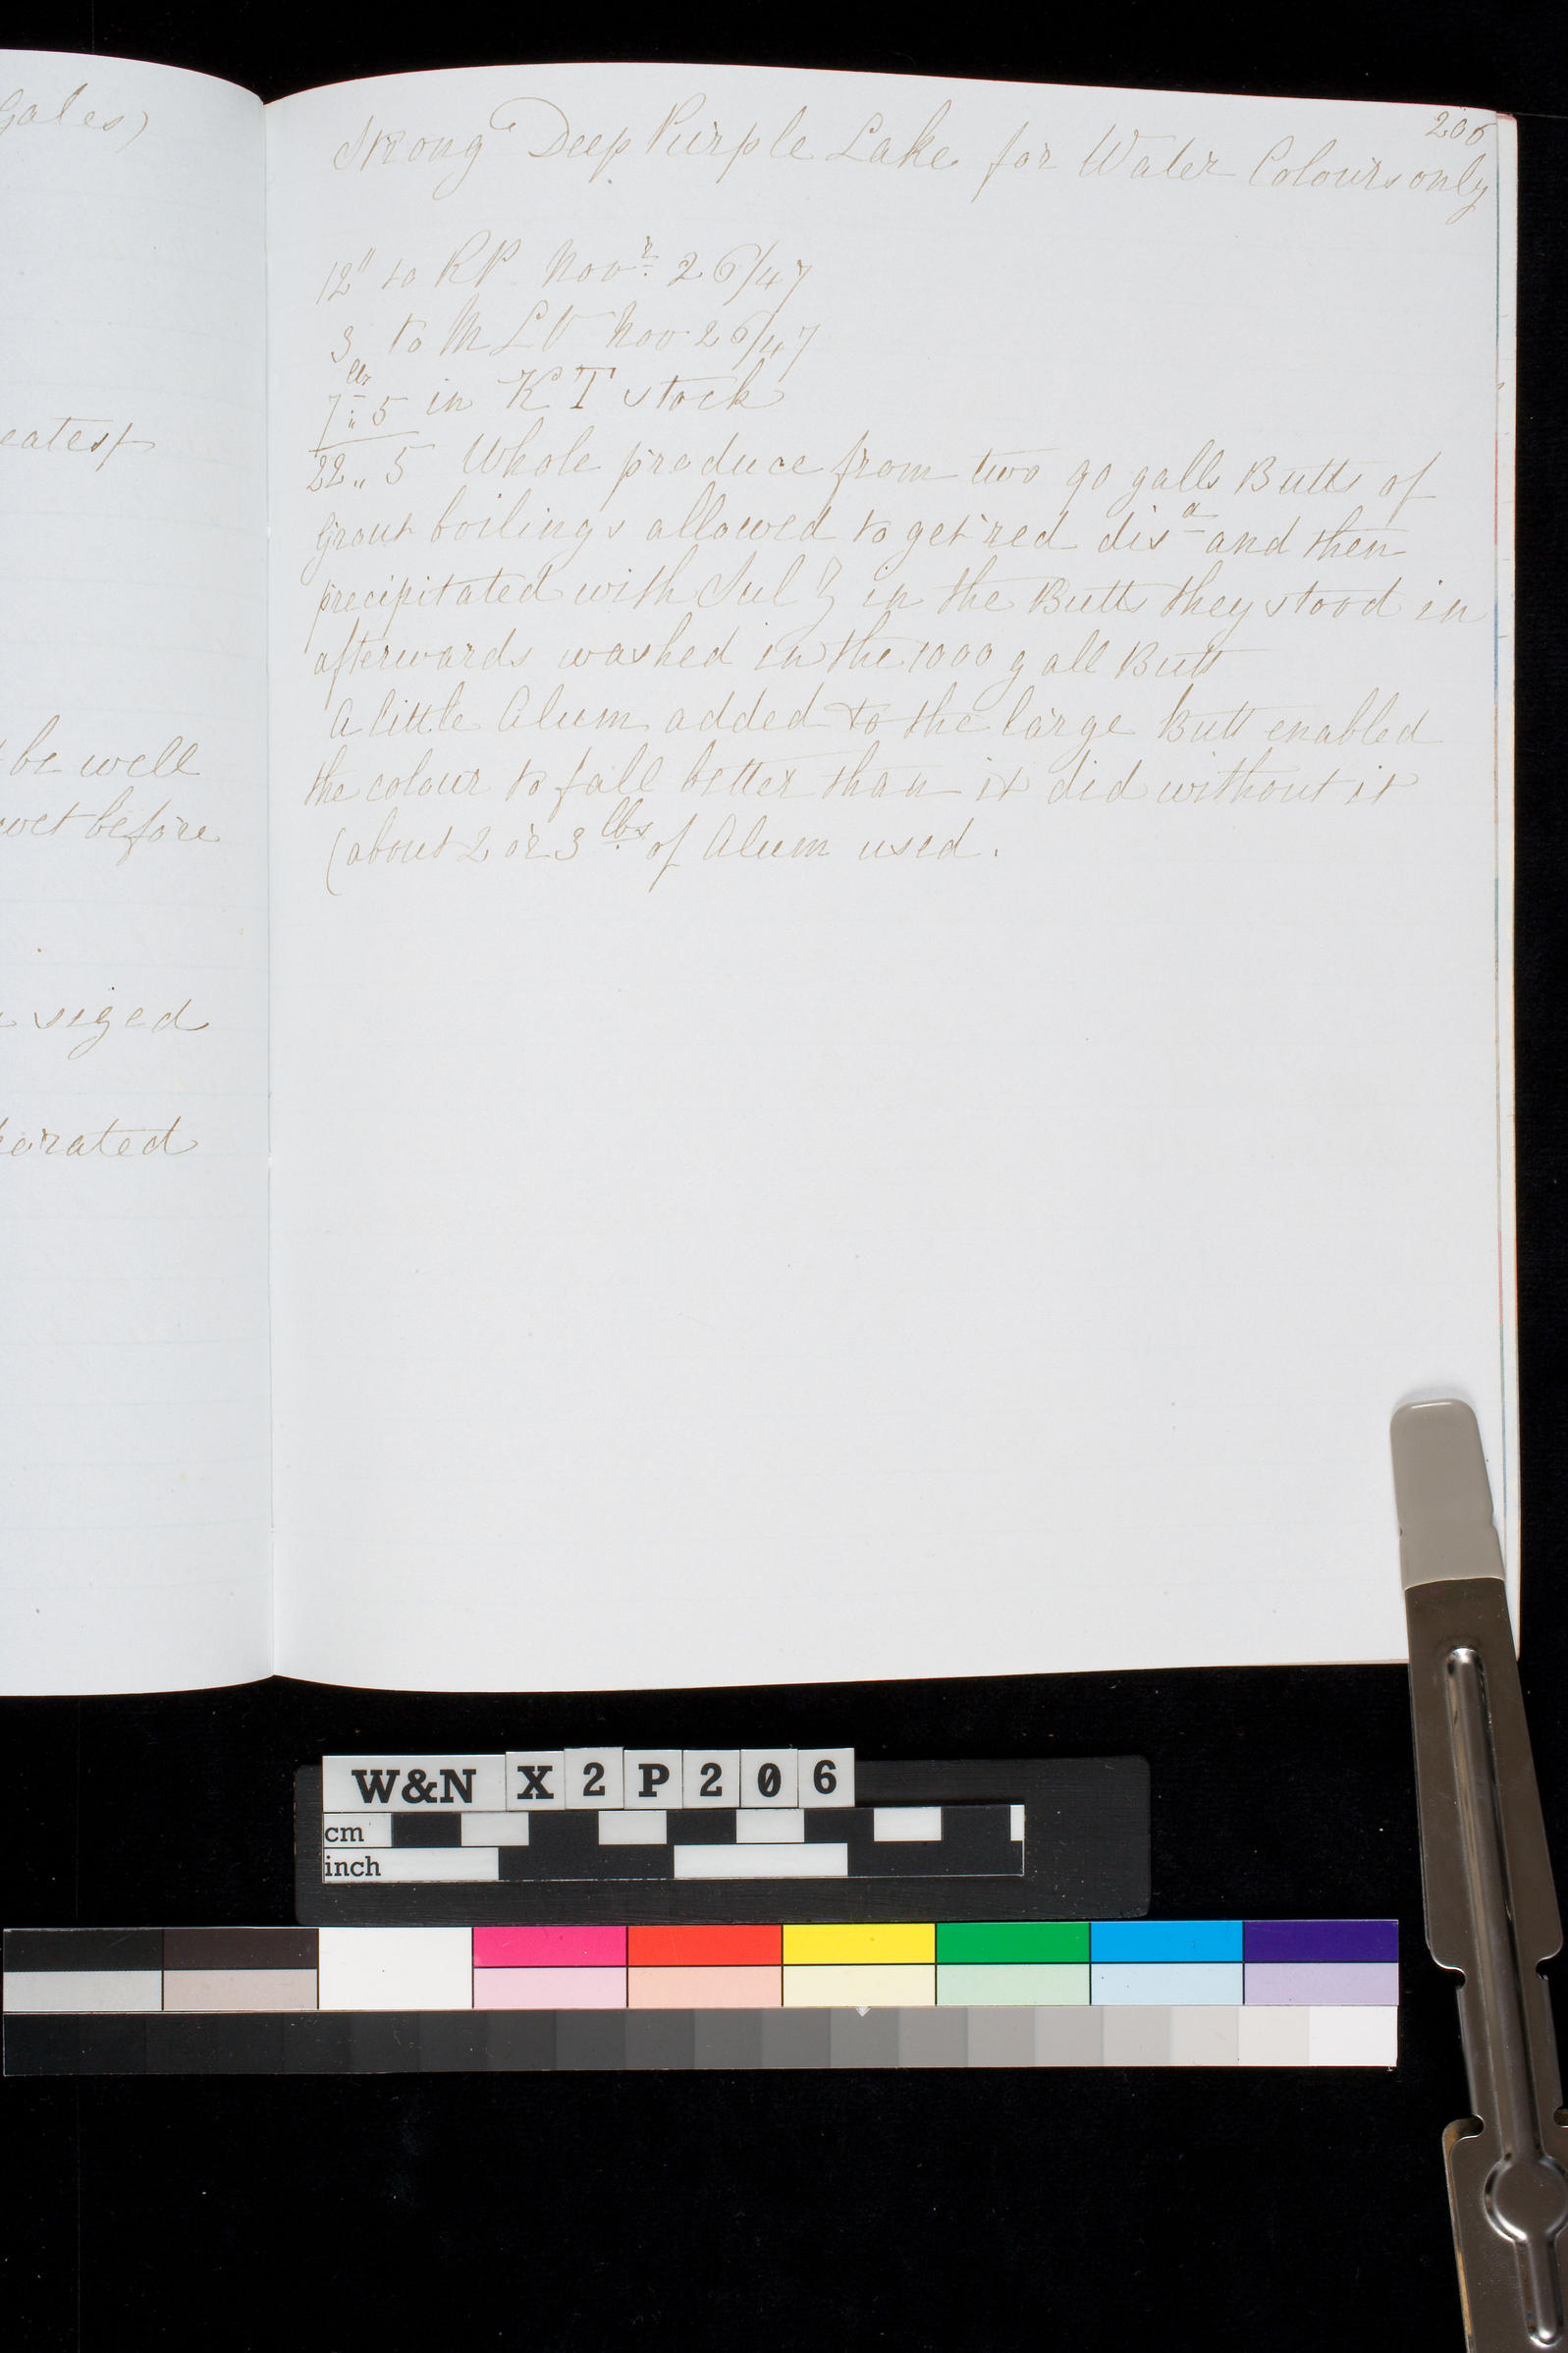 Gales)
eatest
be well
wet before
sized
206
Strong Deep Purple Lake for Water Colours only
12" to RP Novr 26/47
3 to MLV Nov 26/47
lbs
7 " 5 in KT stock
22 " 5 Whole produce from two 90 galls Butts of
Grout boilings allowed to get red disa and then
precipitated with Sul Z in the Butts they stood in
afterwards washed in the 1000 gall Butt
A little Alum added to the large Butt enabled
the colour to fall better than it did without it
(about 2 or 3 lbs of Alum used.
W&N X 2 P 2 0 6
cm
inch